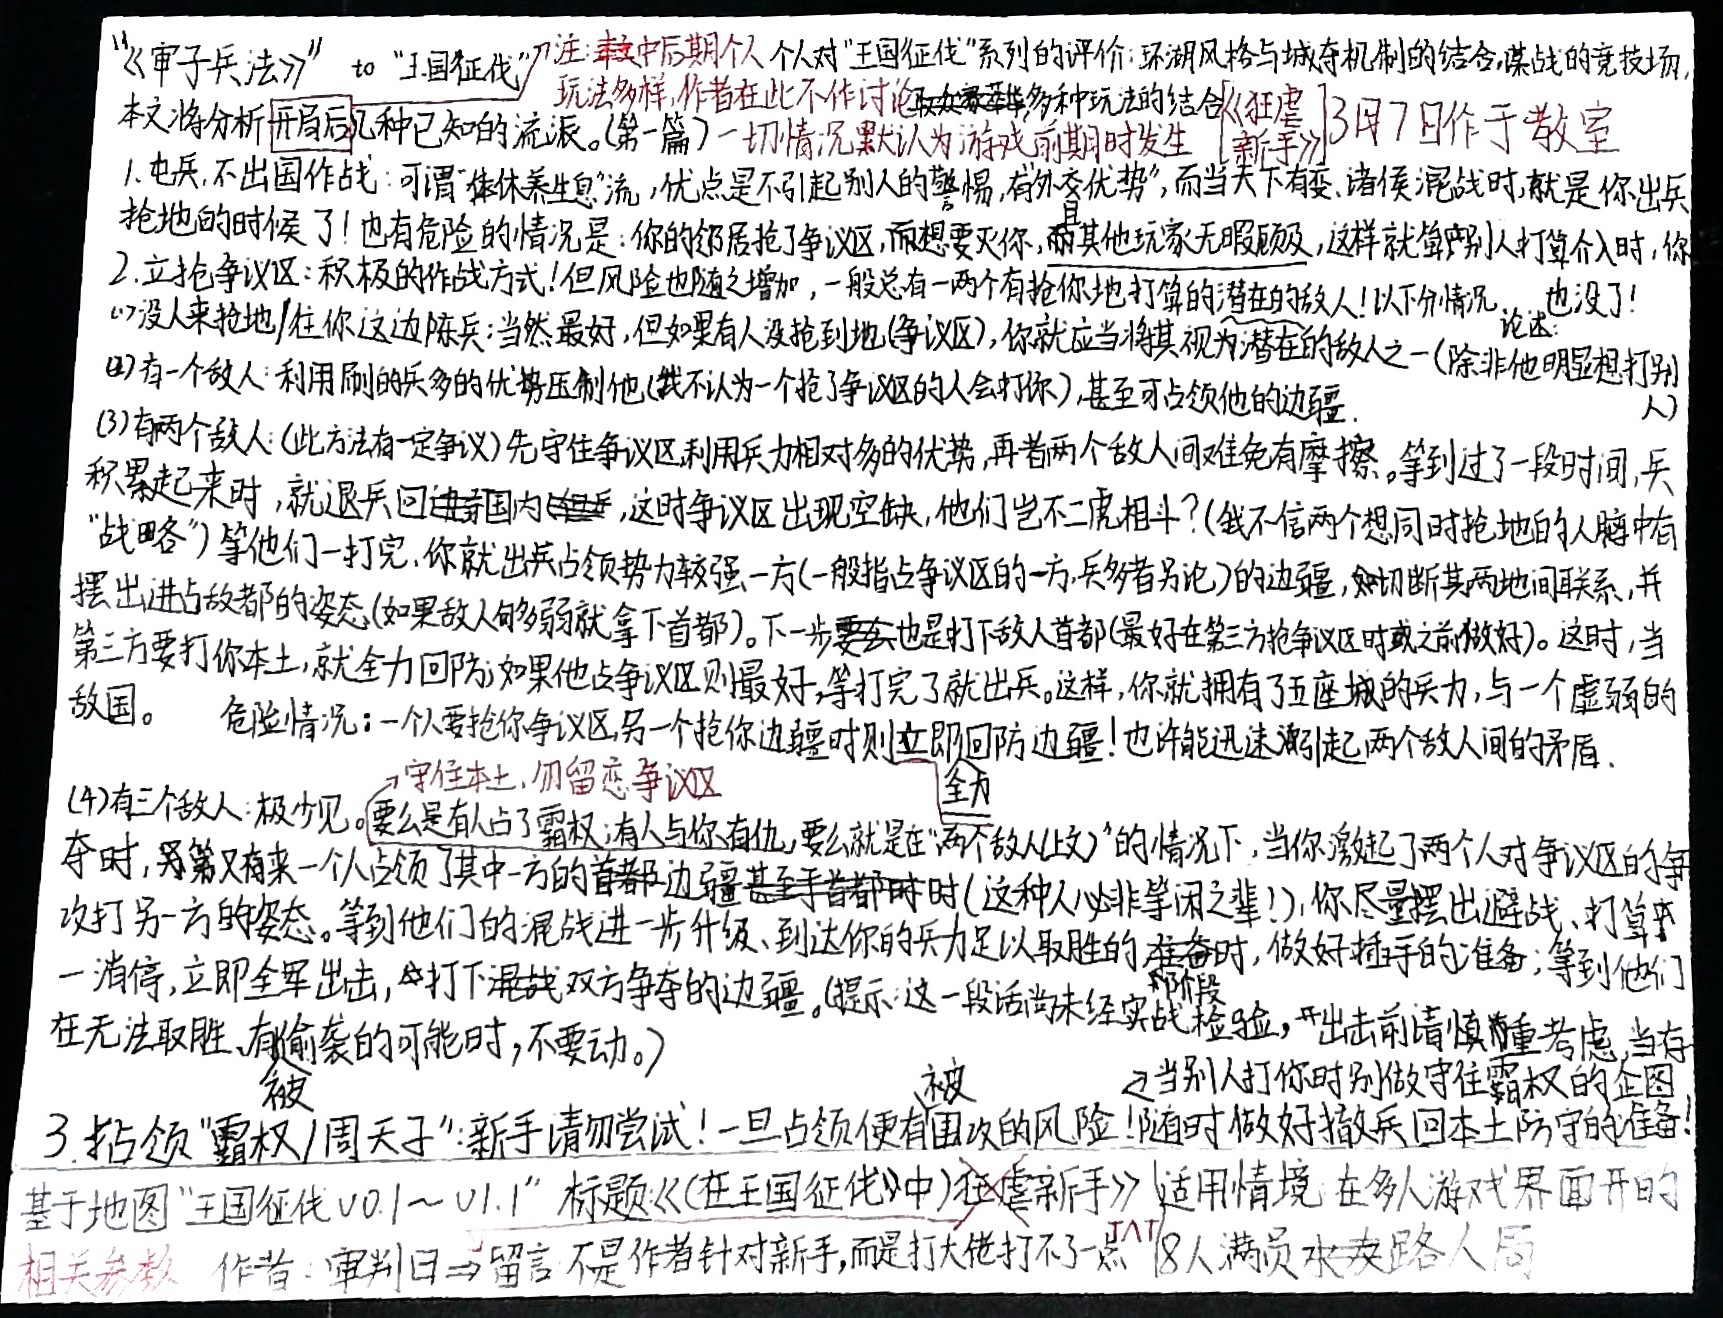 "《审子兵法》" to "王国征伐" 注:中后期个人 个人对"王国征伐"系列的评价:环湖风格与城夺机制的结合,谋战的竞技场,
玩法多样,作者在此不作讨论 多种玩法的结合《狂虐新手》 3月7日作于教室
本文将分析开局后几种已知的流派。(第一篇) 一切情况默认为游戏前期时发生
1.屯兵,不出国作战:可谓"休养生息"流,优点是不引起别人的警惕,有"外交优势",而当天下有变、诸侯混战时,就是你出兵
抢地的时候了!也有危险的情况是:你的邻居抢了争议区,而想要灭你,且其他玩家无暇顾及,这样就算别人打算介入时,你
也没了!
2.立抢争议区:积极的作战方式!但风险也随之增加,一般总有一两个有抢你地打算的潜在的敌人!以下分情况论述:
(1)没人来抢地/往你这边陈兵:当然最好,但如果有人没抢到地(争议区),你就应当将其视为潜在的敌人之一(除非他明显想打别人)
(2)有一个敌人:利用刷的兵多的优势压制他(我不认为一个抢了争议区的人会打你),甚至可占领他的边疆.
(3)有两个敌人:(此方法有一定争议)先守住争议区,利用兵力相对多的优势,再者两个敌人间难免有摩擦。等到过了一段时间,兵
积累起来时,就退兵回国内,这时争议区出现空缺,他们岂不二虎相斗?(我不信两个想同时抢地的人脑中有
"战略")等他们一打完,你就出兵占领势力较强一方(一般指占争议区的一方,兵多者另论)的边疆,切断其两地间联系,并
摆出进占敌都的姿态(如果敌人够弱就拿下首都)。下一步也是打下敌人首都(最好在第三方抢争议区时或之前做好)。这时,当
第三方要打你本土,就全力回防;如果他占争议区则最好,等打完了就出兵。这样,你就拥有了五座城的兵力,与一个虚弱的
敌国。 危险情况:一个人要抢你争议区,另一个抢你边疆时则立即全力回防边疆!也许能迅速引起两个敌人间的矛盾.
守住本土,勿留恋争议区
(4)有三个敌人:极少见。要么是有人占了霸权,有人与你有仇,要么就是在"两个敌人(上文)"的情况下,当你激起了两个人对争议区的争
夺时,又有来一个人占领了其中一方的边疆时(这种人必非等闲之辈!),你尽量摆出避战、打算
攻打另一方的姿态。等到他们的混战进一步升级、到达你的兵力足以取胜的阶段时,做好插手的准备;等到他们
一消停,立即全军出击,打下双方争夺的边疆。(提示:这一段话尚未经实战检验,出击前请慎重考虑,当存
在无法取胜、有被偷袭的可能时,不要动。)
当别人打你时别做守住霸权的企图
3.占领"霸权/周天子":新手请勿尝试!一旦占领便有被围攻的风险!随时做好撤兵回本土防守的准备!
基于地图"王国征伐v0.1~v1.1" 标题:《(在王国征伐中)狂虐新手》 适用情境 在多人游戏界面开的
相关参数 作者:审判日⇒留言 不是作者针对新手,而是打大佬打不了一点TAT 18人满员路人局